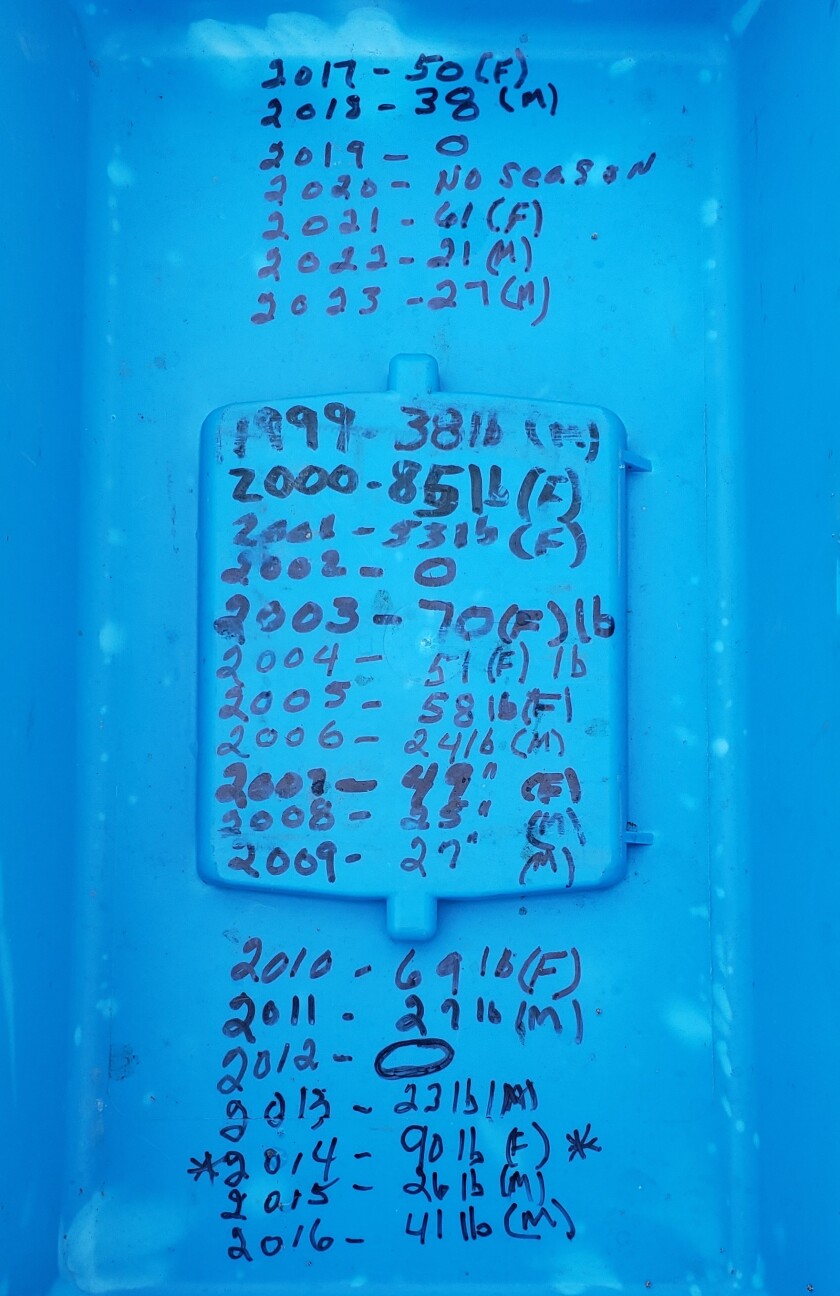 2017 - 50 (F)
2018 - 38 (M)
2019 - 0
2020 - No season
2021 - 61 (F)
2022 - 21 (M)
2023 - 27 (M)
1999 - 38 lb
2000 - 85 lb (F)
2001 - 53 lb (F)
2002 - 0
2003 - 70 (F) lb
2004 - 51 (F) lb
2005 - 58 lb (F)
2006 - 24 lb (M)
2007 - (F)
2008 - 25" (M)
2009 - 27" (M)
2010 - 69 lb (F)
2011 - 27 lb (M)
2012 - 0
2013 - 23 lb (M)
* 2014 - 90 lb (F) *
2015 - 26 lb (M)
2016 - 41 lb (M)